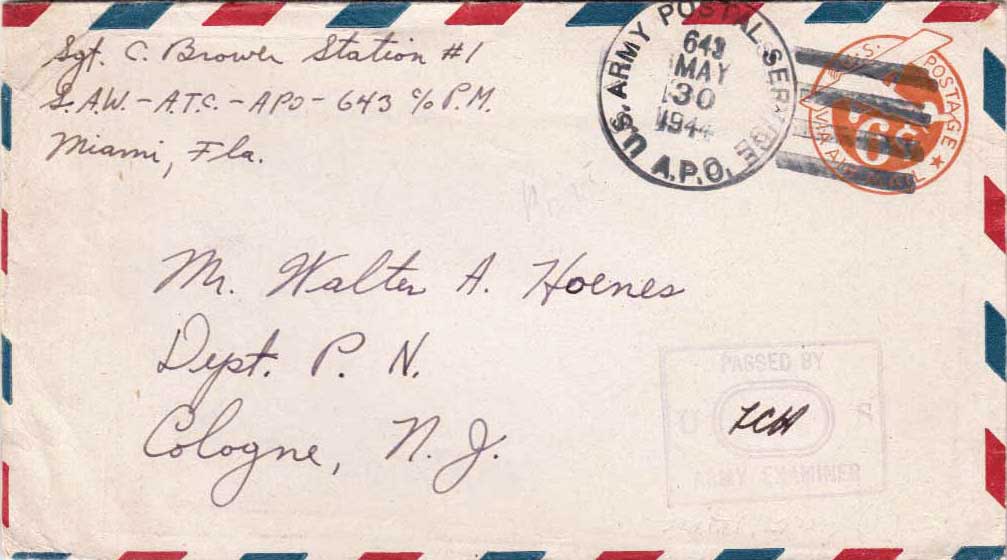 Sgt. C. Brower Station #1
S.A.W. - A.T.C. - APO - 643 c/o P.M.
Miami, Fla.
U.S. ARMY POSTAL SERVICE
643
MAY
30
1944
A.P.O.
U.S. POSTAGE
6¢
VIA AIR MAIL
Mr. Walter A. Hoenes
Dept. P. N.
Cologne, N. J.
PASSED BY
U S
ARMY EXAMINER